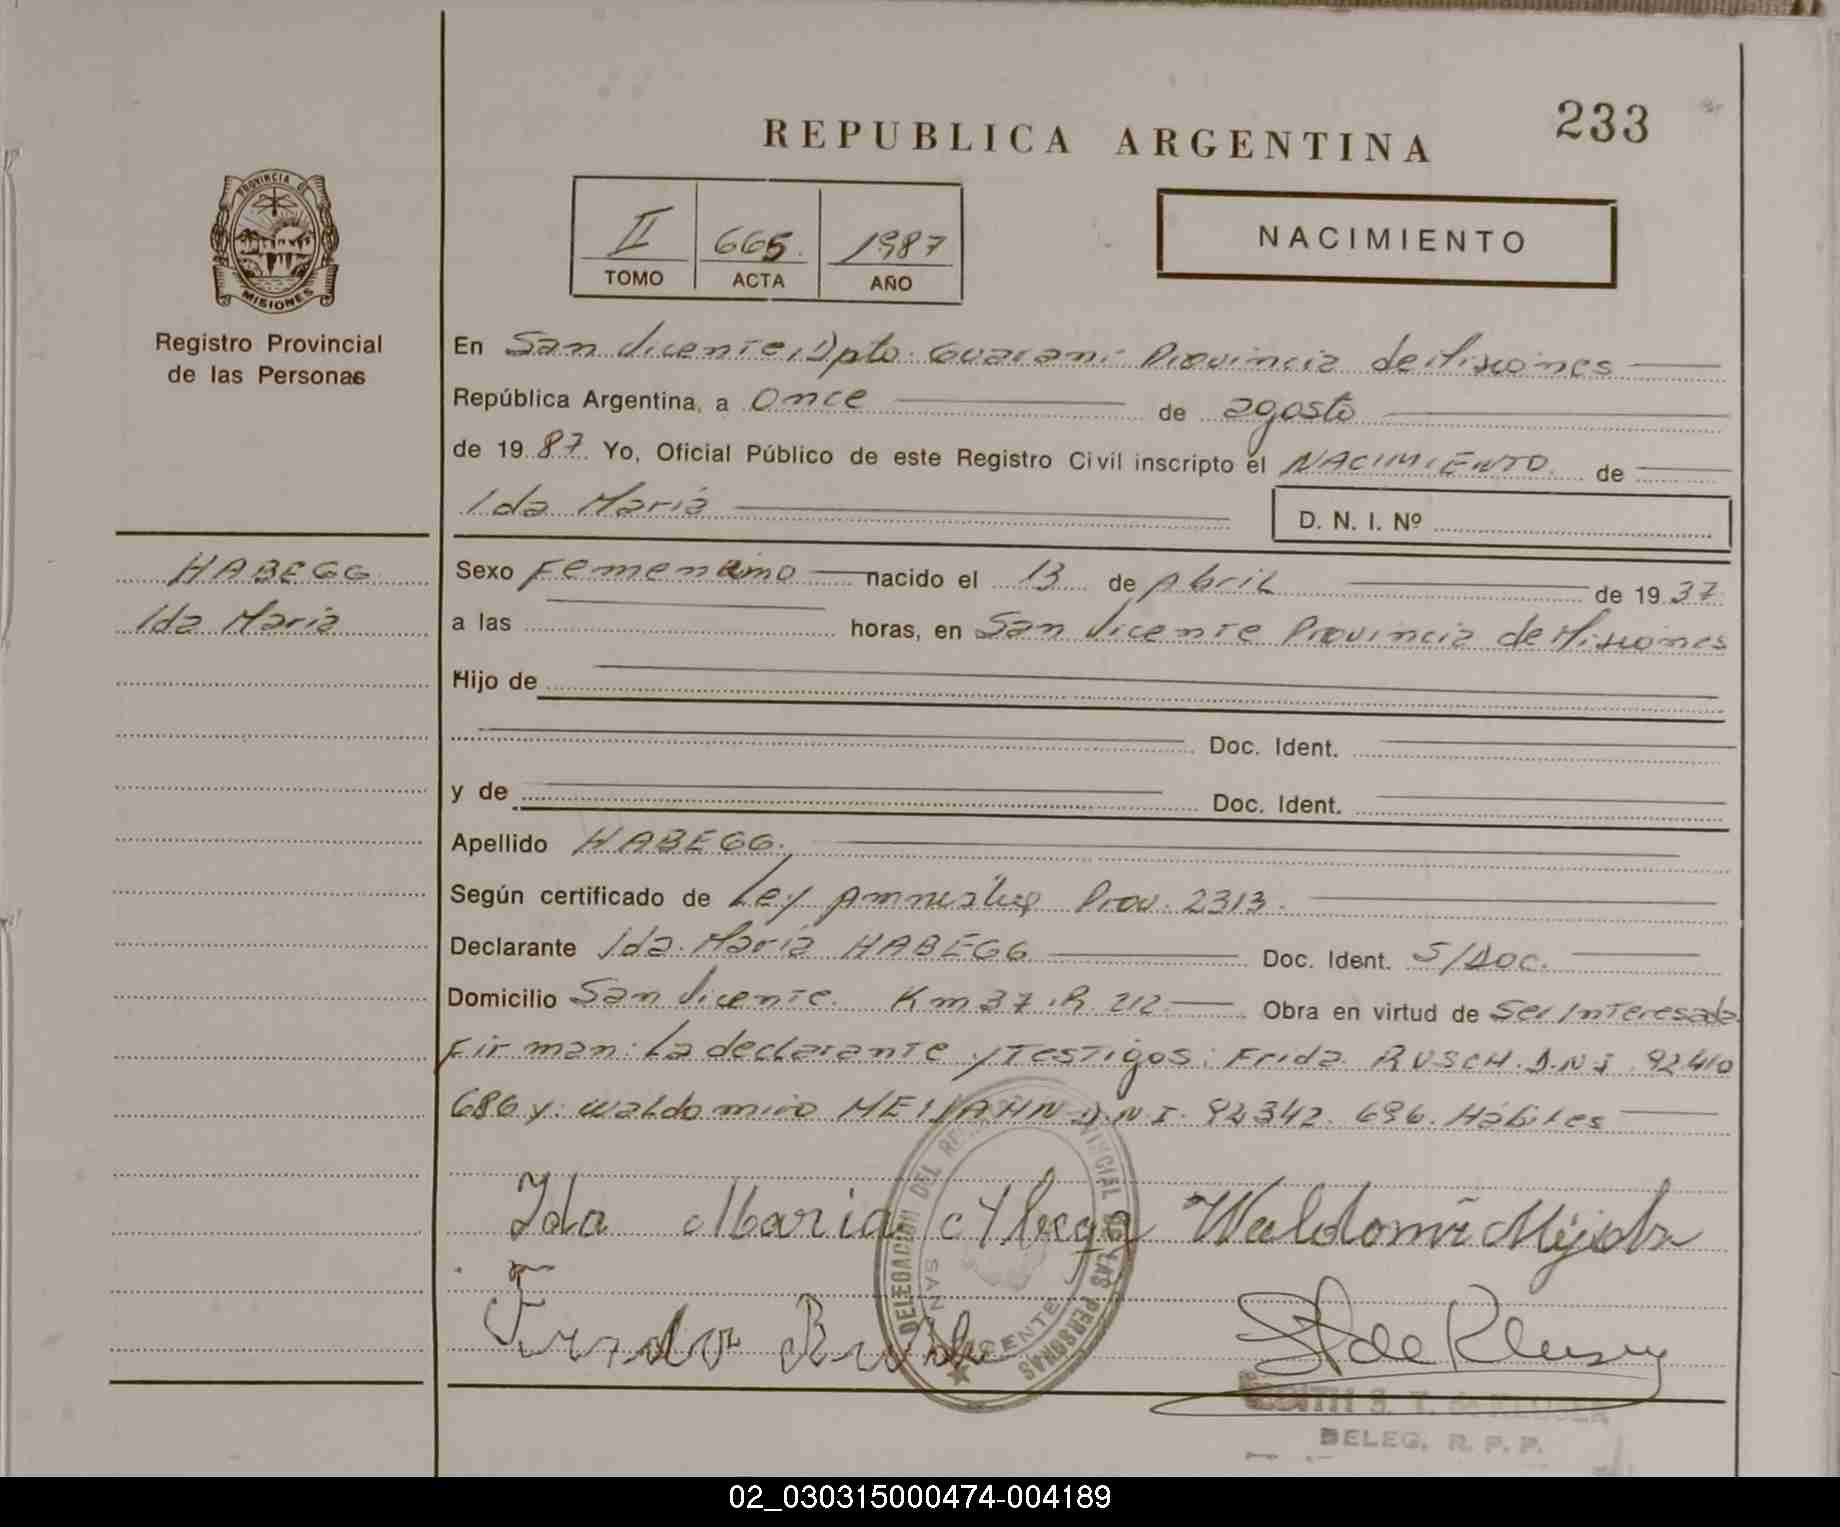 233
REPUBLICA ARGENTINA
PROVINCIA DE
MISIONES
Registro Provincial
de las Personas
II 665. 1987
TOMO ACTA AÑO
NACIMIENTO
En San Vicente, Dpto. Guarani- Provincia de Misiones
República Argentina, a Once de agosto
de 1987. Yo, Oficial Público de este Registro Civil inscripto el NACIMIENTO. de
Ida María D. N. I. Nº
HABEGG
Ida María
Sexo Femenino nacido el 13 de Abril de 1937
a las horas, en San Vicente Provincia de Misiones
Hijo de
Doc. Ident.
y de Doc. Ident.
Apellido HABEGG.
Según certificado de Ley Prov. 2313.
Declarante Ida María HABEGG Doc. Ident. S/Doc.
Domicilio San Vicente. Km 37. R. 212 Obra en virtud de Ser Interesada
Firman: La declarante y Testigos: Frida RUSCH. D.N.I. 92410
686 y: Waldomiro D.N.I. 92342. 696. Hábiles
Ida Maria Waldomi
Frida
DELEGACION DEL PROVINCIAL LAS PERSONAS
SAN VICENTE
DELEG. R. P. P.
02_030315000474-004189